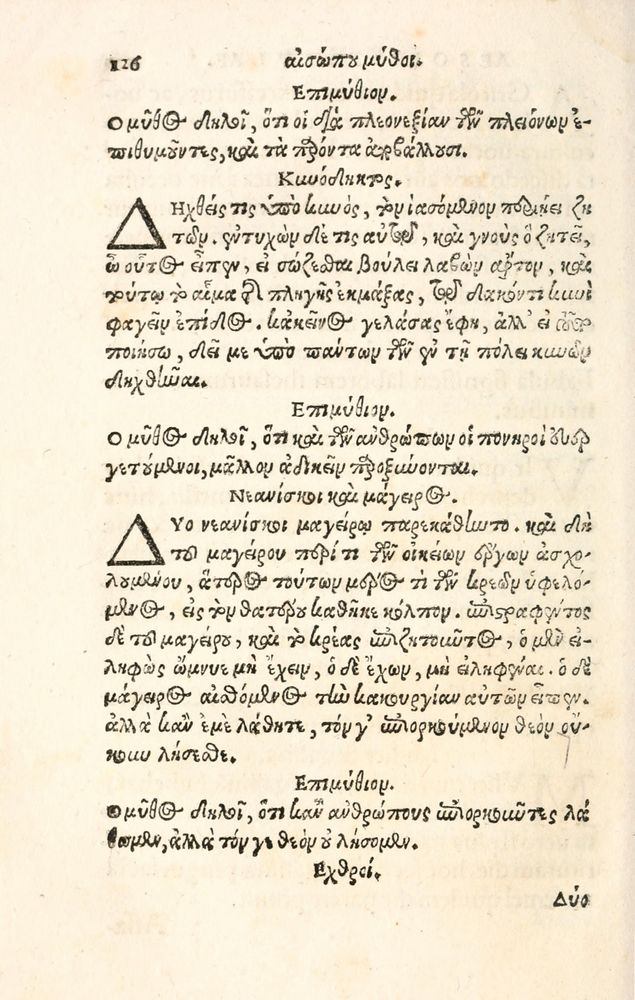 126 αἰσώπου μῦθοι.
Ἐπιμύθιον.
Ο μῦθος δηλοῖ, ὅτι οἱ διὰ πλεονεξίαν τῶν πλειόνων ἐ-
πιθυμοῦντες, καὶ τὰ παρόντα ἀποβάλλουσι.
Κυνόδηκτος.
ΔΗχθείς τις ὑπὸ κυνὸς, τὸν ἰασόμενον περιῄει ζη
τῶν. ἐντυχὼν δέ τις αὐτῷ, καὶ γνοὺς ὃ ζητεῖ,
ὦ οὗτος εἶπεν, εἰ σώζεσθαι βούλει λαβὼν ἄρτον, καὶ
τούτῳ τὸ αἷμα τῆς πληγῆς ἐκμάξας, τῷ δακόντι κυνὶ
φαγεῖν ἐπίδος. κἀκεῖνος γελάσας ἔφη, ἀλλ' εἰ τοῦτο
ποιήσω, δεῖ με ὑπὸ πάντων τῶν ἐν τῇ πόλει κυνῶν
δηχθῆναι.
Ἐπιμύθιον.
Ο μῦθος δηλοῖ, ὅτι καὶ τῶν ἀνθρώπων οἱ πονηροὶ εὐερ
γετούμενοι, μᾶλλον ἀδικεῖν παροξύνονται.
Νεανίσκοι καὶ μάγειρος.
ΔΥο νεανίσκοι μαγείρῳ παρεκάθηντο. καὶ δὴ
τοῦ μαγείρου περί τι τῶν οἰκείων ἔργων ἀσχο-
λουμένου, ἅτερος τούτων μέρος τὶ τῶν κρεῶν ὑφελό-
μενος, εἰς τὸν θατέρου καθῆκε κόλπον. ἐπιστραφέντος
δὲ τοῦ μαγείρου, καὶ τὸ κρέας ἐπιζητοῦντος, ὁ μὲν εἰ-
ληφὼς ὤμνυε μὴ ἔχειν, ὁ δὲ ἔχων, μὴ εἰληφέναι. ὁ δὲ
μάγειρος αἰσθόμενος τὴν κακουργίαν αὐτῶν εἶπεν.
ἀλλὰ κἂν ἐμὲ λάθητε, τόν γ' ἐπιορκούμενον θεὸν οὔ-
κουν λήσεσθε.
Ἐπιμύθιον.
Ο μῦθος δηλοῖ, ὅτι κἂν ἀνθρώπους ἐπιορκοῦντες λά
θωμεν, ἀλλὰ τόν γε θεὸν οὐ λήσομεν.
Ἐχθροί.
Δύο